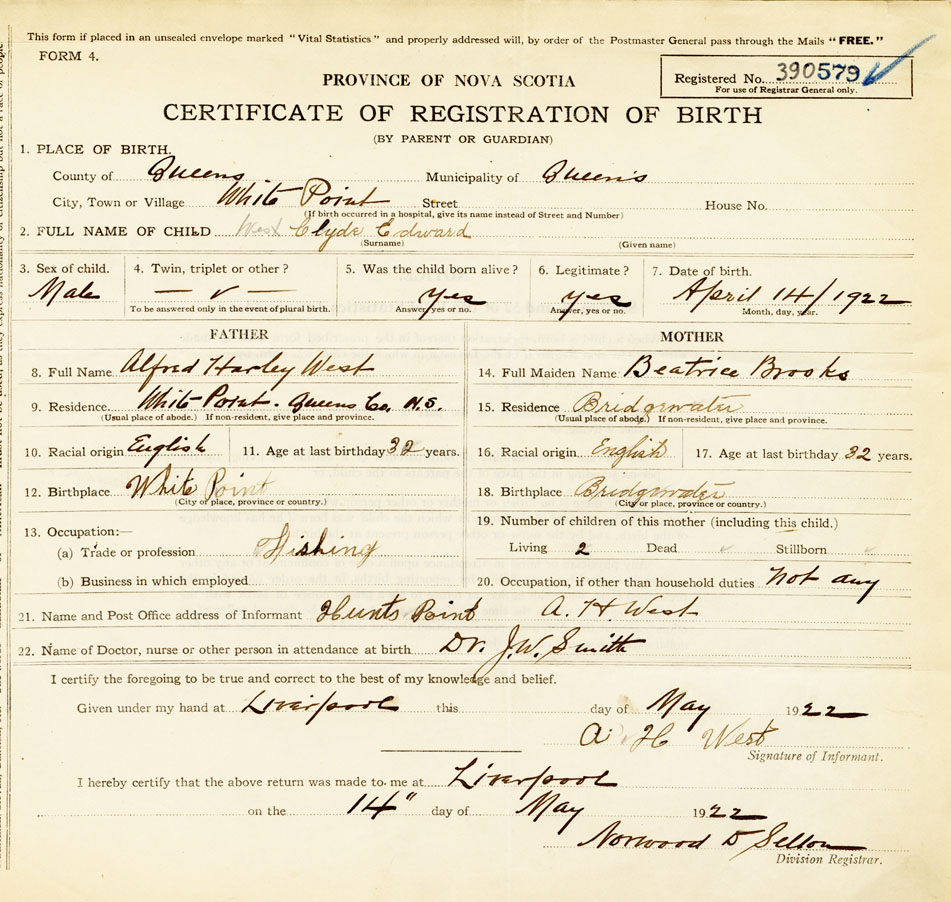 This form if placed in an unsealed envelope marked "Vital Statistics" and properly addressed will, by order of the Postmaster General pass through the Mails "FREE."
FORM 4.
PROVINCE OF NOVA SCOTIA
Registered No. 390579
For use of Registrar General only.
CERTIFICATE OF REGISTRATION OF BIRTH
(BY PARENT OR GUARDIAN)
1. PLACE OF BIRTH.
County of Queens Municipality of Queens
City, Town or Village White Point Street House No.
(If birth occurred in a hospital, give its name instead of Street and Number)
2. FULL NAME OF CHILD West Clyde Edward
(Surname) (Given name)
3. Sex of child. 4. Twin, triplet or other? 5. Was the child born alive? 6. Legitimate? 7. Date of birth.
Male — ✓ — yes yes April 14/1922
To be answered only in the event of plural birth. Answer, yes or no. Answer, yes or no. Month, day, year.
FATHER MOTHER
8. Full Name Alfred Harley West 14. Full Maiden Name Beatrice Brooks
9. Residence. White Point. Queens Co, N.S. 15. Residence Bridgewater
(Usual place of abode.) If non-resident, give place and province. (Usual place of abode.) If non-resident, give place and province.
10. Racial origin English 11. Age at last birthday 32 years. 16. Racial origin English 17. Age at last birthday 32 years.
12. Birthplace White Point 18. Birthplace Bridgewater
(City or place, province or country.) (City or place, province or country.)
13. Occupation:— 19. Number of children of this mother (including this child.)
(a) Trade or profession Fishing Living 2 Dead ✓ Stillborn ✓
(b) Business in which employed 20. Occupation, if other than household duties not any
21. Name and Post Office address of Informant Hunts Point A. H. West
22. Name of Doctor, nurse or other person in attendance at birth Dr. J.W. Smith
I certify the foregoing to be true and correct to the best of my knowledge and belief.
Given under my hand at Liverpool this day of May 1922
A H West
Signature of Informant.
I hereby certify that the above return was made to me at Liverpool
on the 14" day of May 1922
Norwood D
Division Registrar.